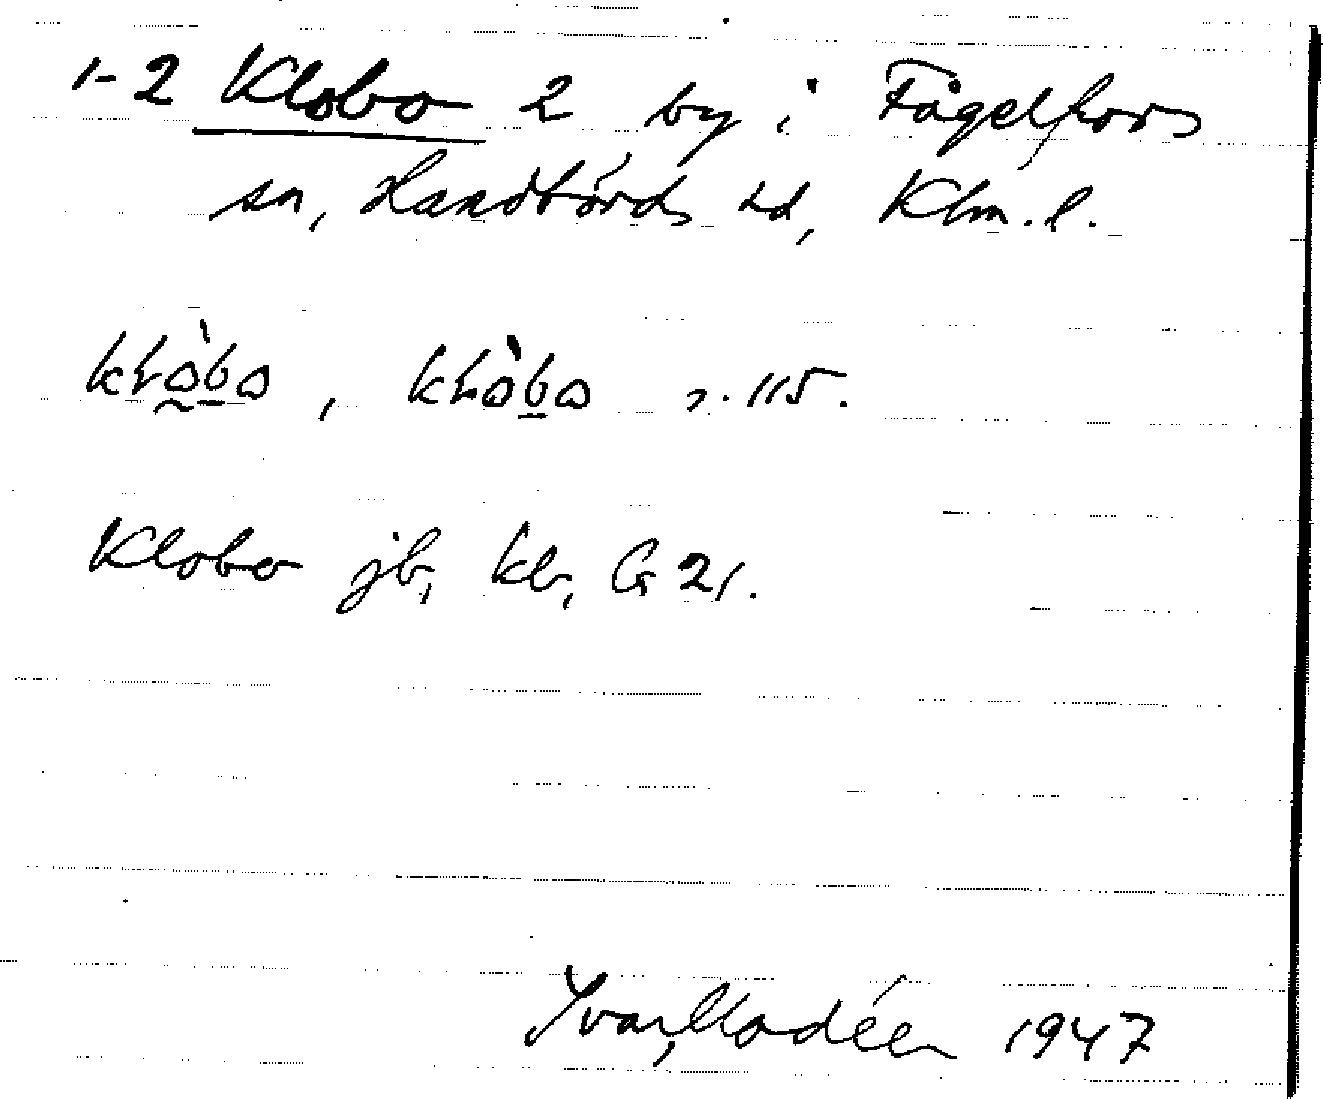 1-2 Klobo 2 by i Fågelfors
sn, Handbörds hd, Klm. l.
Klobo jb, kb, G 21.
Yvar Modéer 1947